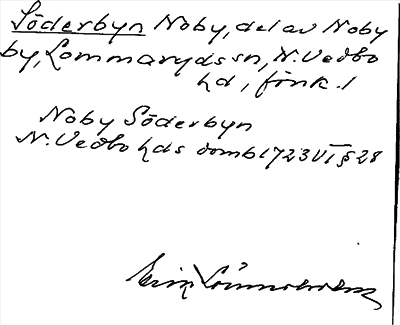 Söderbyn Noby, del av Noby
by, Lommaryds sn, N. Vedbo
hd, jönk. l
Noby Söderbyn
N. Vedbo hds domb 1723 VI § 28
Erik